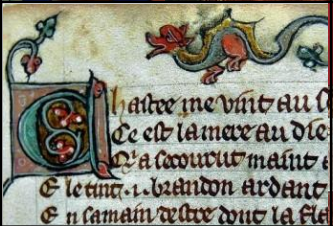 Chastee me vint au s
Ce est la mere au die
Q'a secourut maint
E le tint .i. brandon ardant
E n sa main destre dont la fla